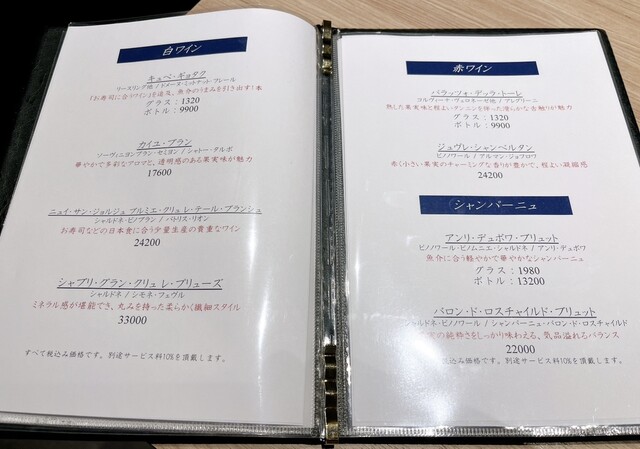 白ワイン
キュベ・ギョタク
リースリング他 / ドメーヌ・ミットナット・フレール
「お寿司に合うワイン」を追及。魚介のうまみを引き出す1本
グラス：1320
ボトル：9900
カイユ・ブラン
ソーヴィニヨンブラン・セミヨン / シャトー・タルボ
華やかで多彩なアロマと、透明感のある果実味が魅力
17600
ニュイ・サン・ジョルジュ プルミエ・クリュ レ・テール・ブランシュ
シャルドネ・ピノブラン / パトリス・リオン
お寿司などの日本食に合う少量生産の貴重なワイン
24200
シャブリ・グラン・クリュ レ・プリューズ
シャルドネ / シモネ・フェヴル
ミネラル感が堪能でき、丸みを持った柔らかく繊細スタイル
33000
すべて税込み価格です。別途サービス料10%を頂戴します。
赤ワイン
パラッツォ・デッラ・トーレ
コルヴィーナ・ヴェロネーゼ他 / アレグリーニ
熟した果実味と程よいタンニンを伴った滑らかな舌触りが魅力
グラス：1320
ボトル：9900
ジュヴレ・シャンベルタン
ピノノワール / アルマン・ジョフロワ
赤く小さい果実のチャーミングな香りが豊かで、程よい凝縮感
24200
シャンパーニュ
アンリ・デュボワ・ブリュット
ピノノワール・ピノムニエ・シャルドネ / アンリ・デュボワ
魚介に合う軽やかで華やかなシャンパーニュ
グラス：1980
ボトル：13200
バロン・ド・ロスチャイルド・ブリュット
シャルドネ・ピノノワール / シャンパーニュ・バロン・ド・ロスチャイルド
の純粋さをしっかり味わえる、気品溢れるバランス
22000
税込み価格です。別途サービス料10%を頂戴します。